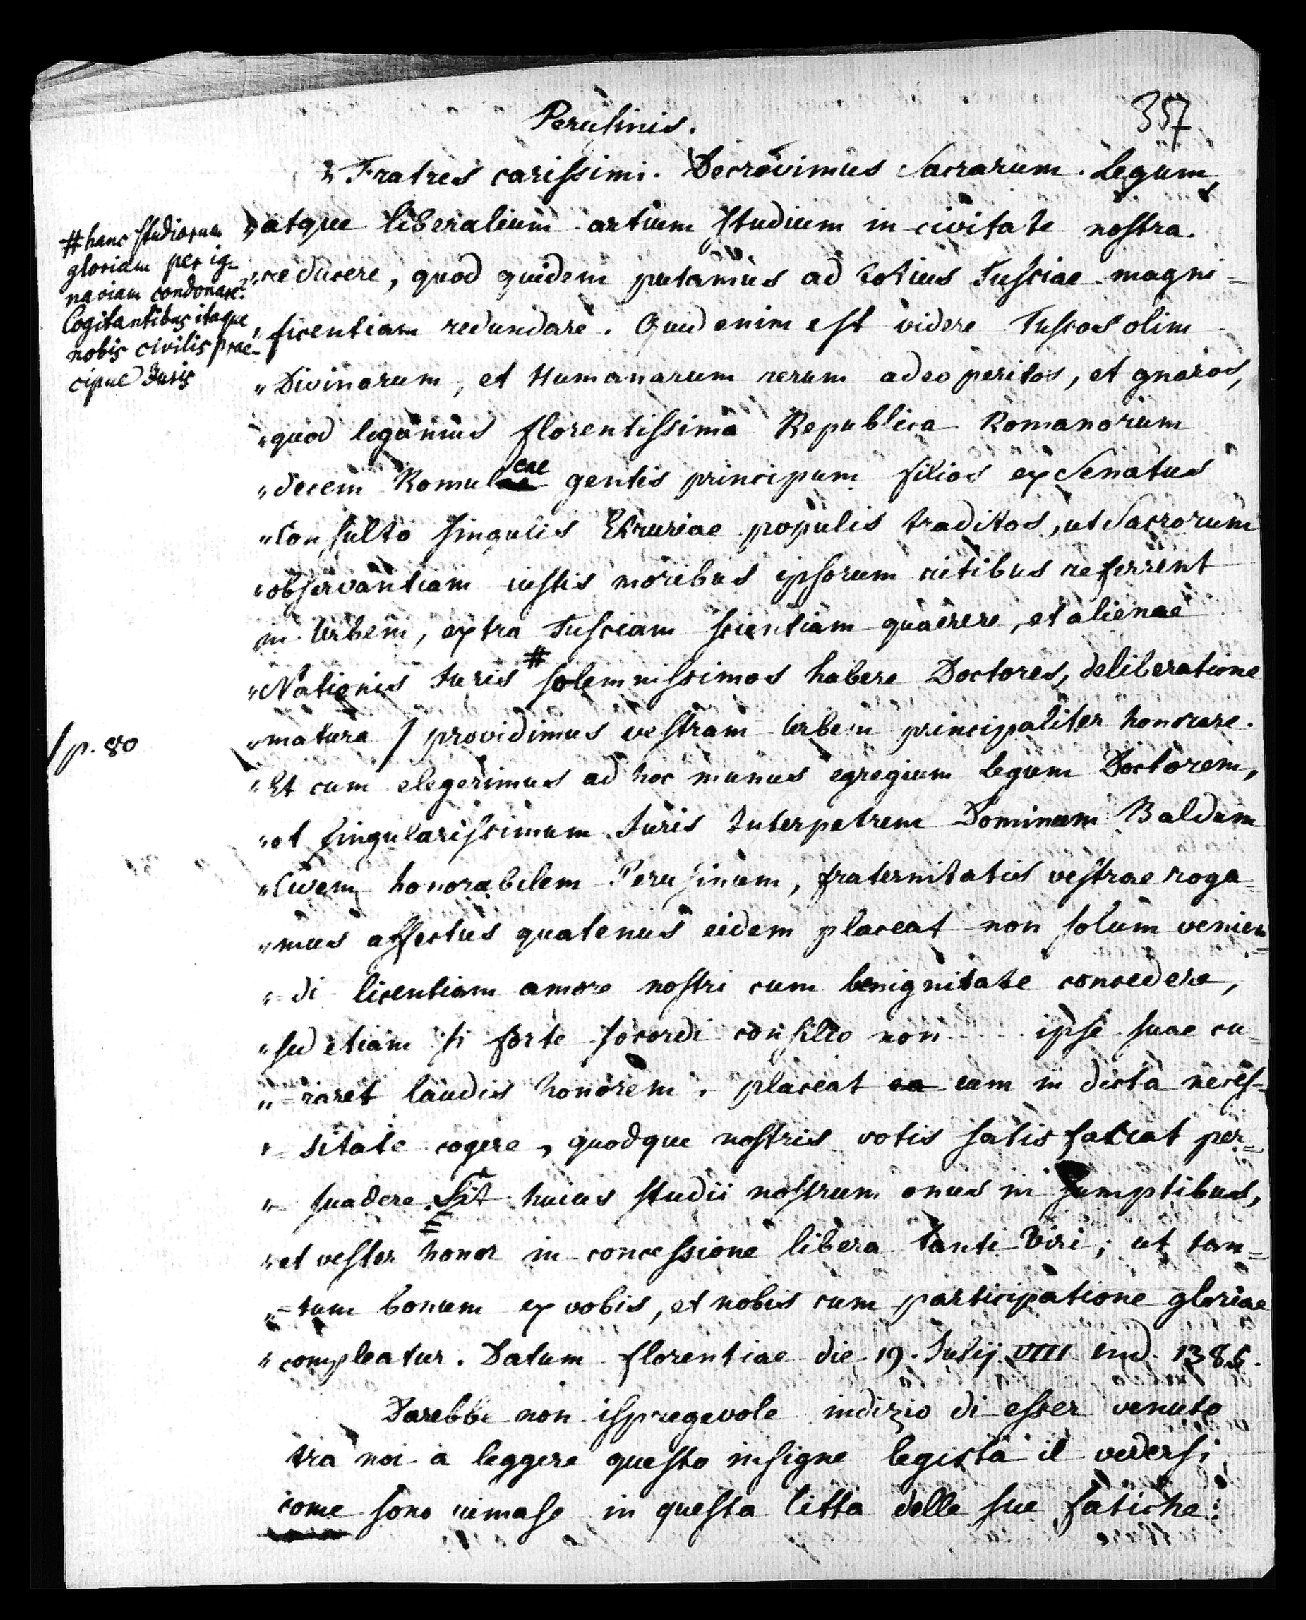 357
Perusinis.
„ Fratres carissimi. Decrevimus Sacrarum Legum,
„ atque liberalium artium studium in civitate nostra
„ reducere, quod quidem putamus ad totius Tusciae magni=
„ ficentiam redundare. Quid enim est videre Tuscos olim
„ Divinarum, et Humanarum rerum adeo peritos, et gnaros,
„ quod legamus florentissima Republica Romanorum
„ decem Romuleae gentis principum filios ex Senatus
„ Consulto singulis Etruriae populis traditos, ut Sacrorum
„ observantiam iustis moribus ipsorum ritibus referrent
„ in Urbem, extra Tusciam scientiam quaerere, et alienae
„ Nationis Iuris # solemnissimos habere Doctores, deliberatione
„ matura / providimus vestram Urbem principaliter honorare.
„ Et cum elegerimus ad hoc munus egregium legum Doctorem,
„ et singularissimum Iuris Interpetrem Dominum Baldum
„ Civem honorabilem Perusinum, fraternitatis vestrae roga=
„ mus affectus quatenus eidem placeat non solum venien=
„ di licentiam amore nostri cum benignitate concedere,
„ sed etiam si forte socordi consilio non ... ipse suae cu=
„ raret laudis honorem, placeat eum in dicta neces=
„ sitate cogere, quodque nostris votis satisfaciat per=
„ suadere. Sit huius studii nostrum onus in sumptibus,
„ et vester honor in concessione libera tanti Viri; ut tan=
„ tum bonum ex vobis, et nobis cum participatione gloriae
„ compleatur. Datum florentiae die 19. Iulij VIII Ind. 1385.
Darebbe non ispregevole indizio di esser venuto
tra noi a leggere questo insigne legista il vedersi
come sono rimase in questa Città delle sue fatiche:
# hanc studiorum
gloriam per ig-
naviam condonare?
Cogitantibus itaque
nobis civilis prae-
cipue Iuris
/ p. 80